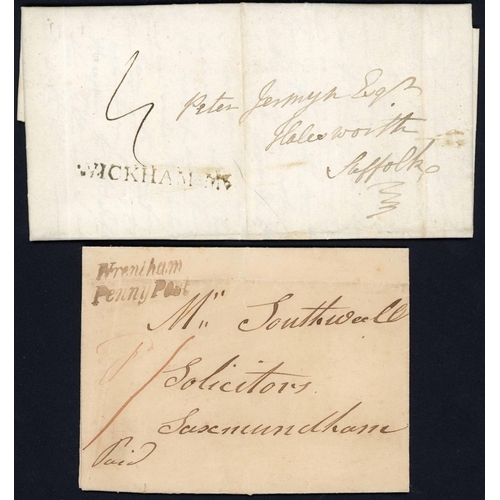 Peter Jermyn Esqr
Halesworth
Suffolk
4
WICKHAM-M
Wrentham
Penny Post
Mr Southwell
Solicitors
Saxmundham
Paid